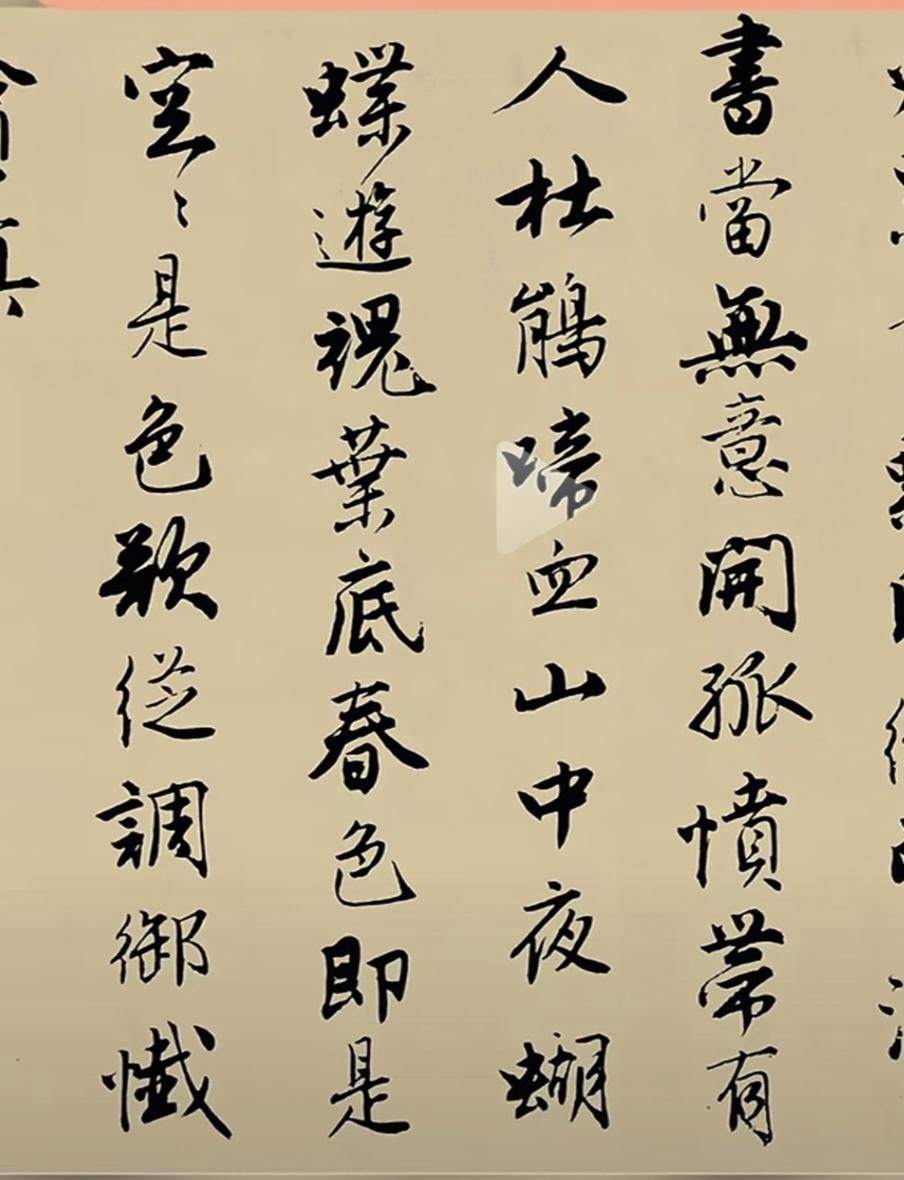 書當無意開孤憤帶有
人杜鵑啼血山中夜蝴
蝶遊魂葉底春色即是
空〻是色從調御懺